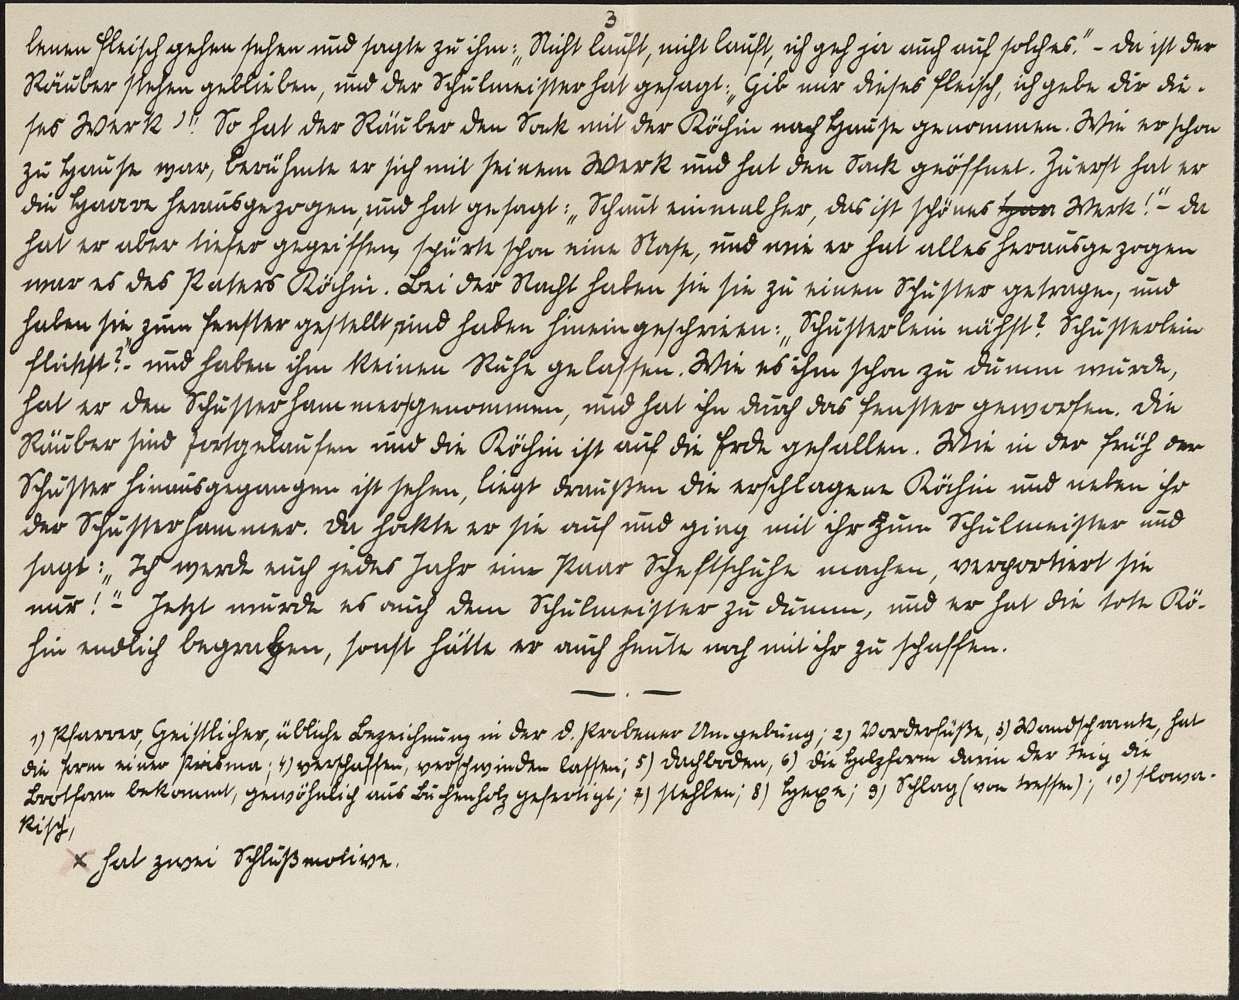 3
lenen Fleisch gehen sehen und sagte zu ihm: „Nicht lauft, nicht lauft, ich geh ja auch auf solches." – Da ist der
Räuber stehen geblieben, und der Schulmeister hat gesagt: „Gib mir dieses Fleisch, ich gebe dir die-
ses Werk!" So hat der Räuber den Sack mit der Köchin nach Hause genommen. Wie er schon
zu Hause war, berühmte er sich mit seinem Werk und hat den Sack geöffnet. Zuerst hat er
die Haare herausgezogen und hat gesagt: „Schaut einmal her, das ist schönes Werk!" – Da
hat er aber tiefer gegriffen, spürte schon eine Nase, und wie er hat alles herausgezogen
war es des Paters Köchin. Bei der Nacht haben sie sie zu einen Schuster getragen, und
haben sie zum Fenster gestellt und haben hineingeschrieen: „Schusterlein nähst? Schusterlein
flickst?" – und haben ihm keinen Ruhe gelassen. Wie es ihm schon zu dumm wurde,
hat er den Schusterhammer genommen, und hat ihn durch das Fenster geworfen. Die
Räuber sind fortgelaufen und die Köchin ist auf die Erde gefallen. Wie in der Früh der
Schuster hinausgegangen ist sehen, liegt draußen die erschlagene Köchin und neben ihr
der Schusterhammer. Da hockte er sie auf und ging mit ihr zum Schulmeister und
sagt: „Ich werde euch jedes Jahr ein Paar Scheftschuhe machen, verportiert sie
nur!" – Jetzt wurde es auch dem Schulmeister zu dumm, und er hat die tote Kö-
chin endlich begraben, sonst hätte er auch heute noch mit ihr zu schaffen.
— . —
1) Pfarrer, Geistlicher, übliche Bezeichnung in der d. Probener Umgebung; 2) Vorderfüße, 3) Wandschrank, hat
die Form einer Prisma; 4) verschaffen, verschwinden lassen; 5) Dachboden, 6) die Holzform darin der Teig die
Brotform bekommt, gewöhnlich aus Buchenholz gefertigt; 7) stehlen; 8) Hexe; 9) Schlag (von treffen); 10) slowa-
kisch,
x hat zwei Schlußmotive.